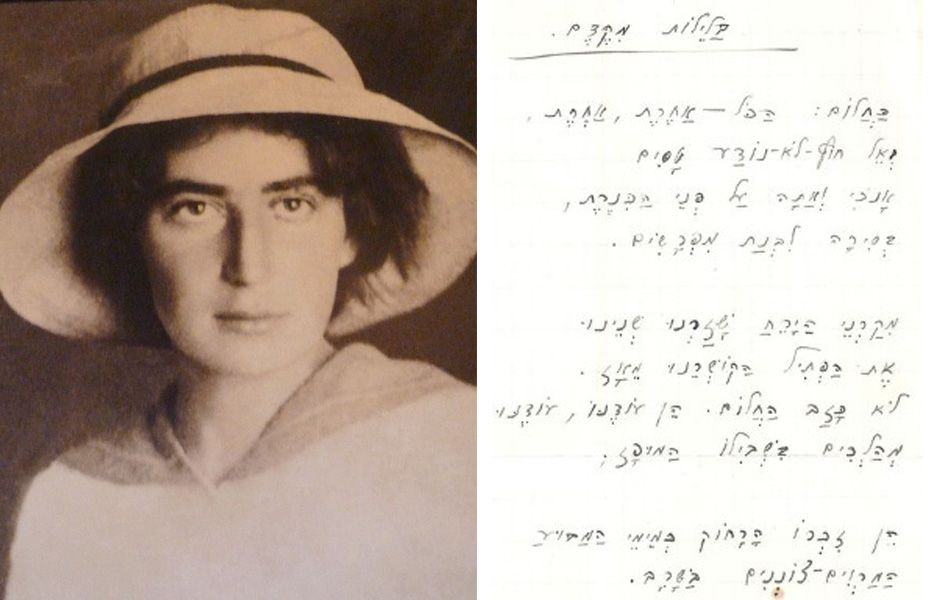 בַּלֵּילוֹת מִקֶּדֶם.
בַּחֲלוֹם: הַכֹּל — אַחֶרֶת, אַחֶרֶת,
וְאֶל חוֹף-לֹא-נוֹדַע טָסִים
אָנֹכִי וְאַתָּה עַל פְּנֵי הַכִּנֶּרֶת,
בְּסִירָה לִבְנַת מִפְרָשִׂים.
מִקַּרְנֵי הַיָּרֵחַ שָׁזַרְנוּ שְׁנֵינוּ
אֶת הַפְּתִיל הַקּוֹשְׁרֵנוּ מֵאָז.
לֹא כָּזַב הַחֲלוֹם. הֵן עוֹדֶנּוּ, עוֹדֶנּוּ
מְהַלְּכִים בִּשְׁבִילוֹ הַמּוּפָז;
הֵן זִכְרוֹ הָרָחוֹק כְּמֵימֵי הַמַּבּוּעַ
הַמַּרְוִים-צוֹנְנִים בַּשָּׁרָב.